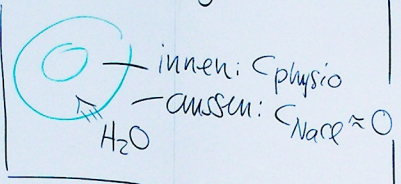 innen: c_physio
aussen: c_NaCl ≈ 0
H₂O